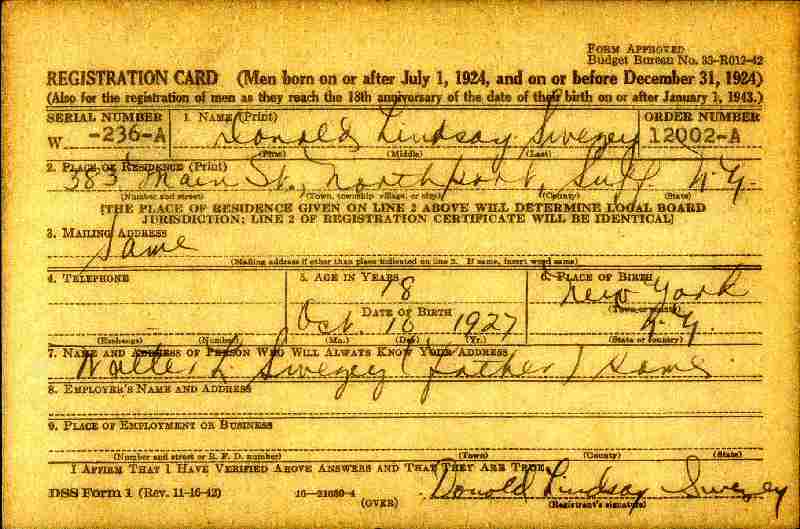 FORM APPROVED
Budget Bureau No. 33-R012-42
REGISTRATION CARD (Men born on or after July 1, 1924, and on or before December 31, 1924)
(Also for the registration of men as they reach the 18th anniversary of the date of their birth on or after January 1, 1943.)
SERIAL NUMBER 1. NAME (Print) ORDER NUMBER
W -236-A Donald Lindsay Swezey 12002-A
(First) (Middle) (Last)
2. PLACE OF RESIDENCE (Print)
383 Main St., Northport Suff. N.Y.
(Number and street) (Town, township, village, or city) (County) (State)
[THE PLACE OF RESIDENCE GIVEN ON LINE 2 ABOVE WILL DETERMINE LOCAL BOARD
JURISDICTION; LINE 2 OF REGISTRATION CERTIFICATE WILL BE IDENTICAL]
3. MAILING ADDRESS
Same
(Mailing address if other than place indicated on line 2. If same, insert word same)
4. TELEPHONE 5. AGE IN YEARS 6. PLACE OF BIRTH
18 New York
DATE OF BIRTH (Town or county)
Oct. 16 1927 N.Y.
(Exchange) (Number) (Mo.) (Day) (Yr.) (State or country)
7. NAME AND ADDRESS OF PERSON WHO WILL ALWAYS KNOW YOUR ADDRESS
Walter L. Swezey (father) same
8. EMPLOYER'S NAME AND ADDRESS
9. PLACE OF EMPLOYMENT OR BUSINESS
(Number and street or R. F. D. number) (Town) (County) (State)
I AFFIRM THAT I HAVE VERIFIED ABOVE ANSWERS AND THAT THEY ARE TRUE.
DSS Form 1 (Rev. 11-16-42) 16-21630-4 Donald Lindsay Swezey
(OVER) (Registrant's signature)